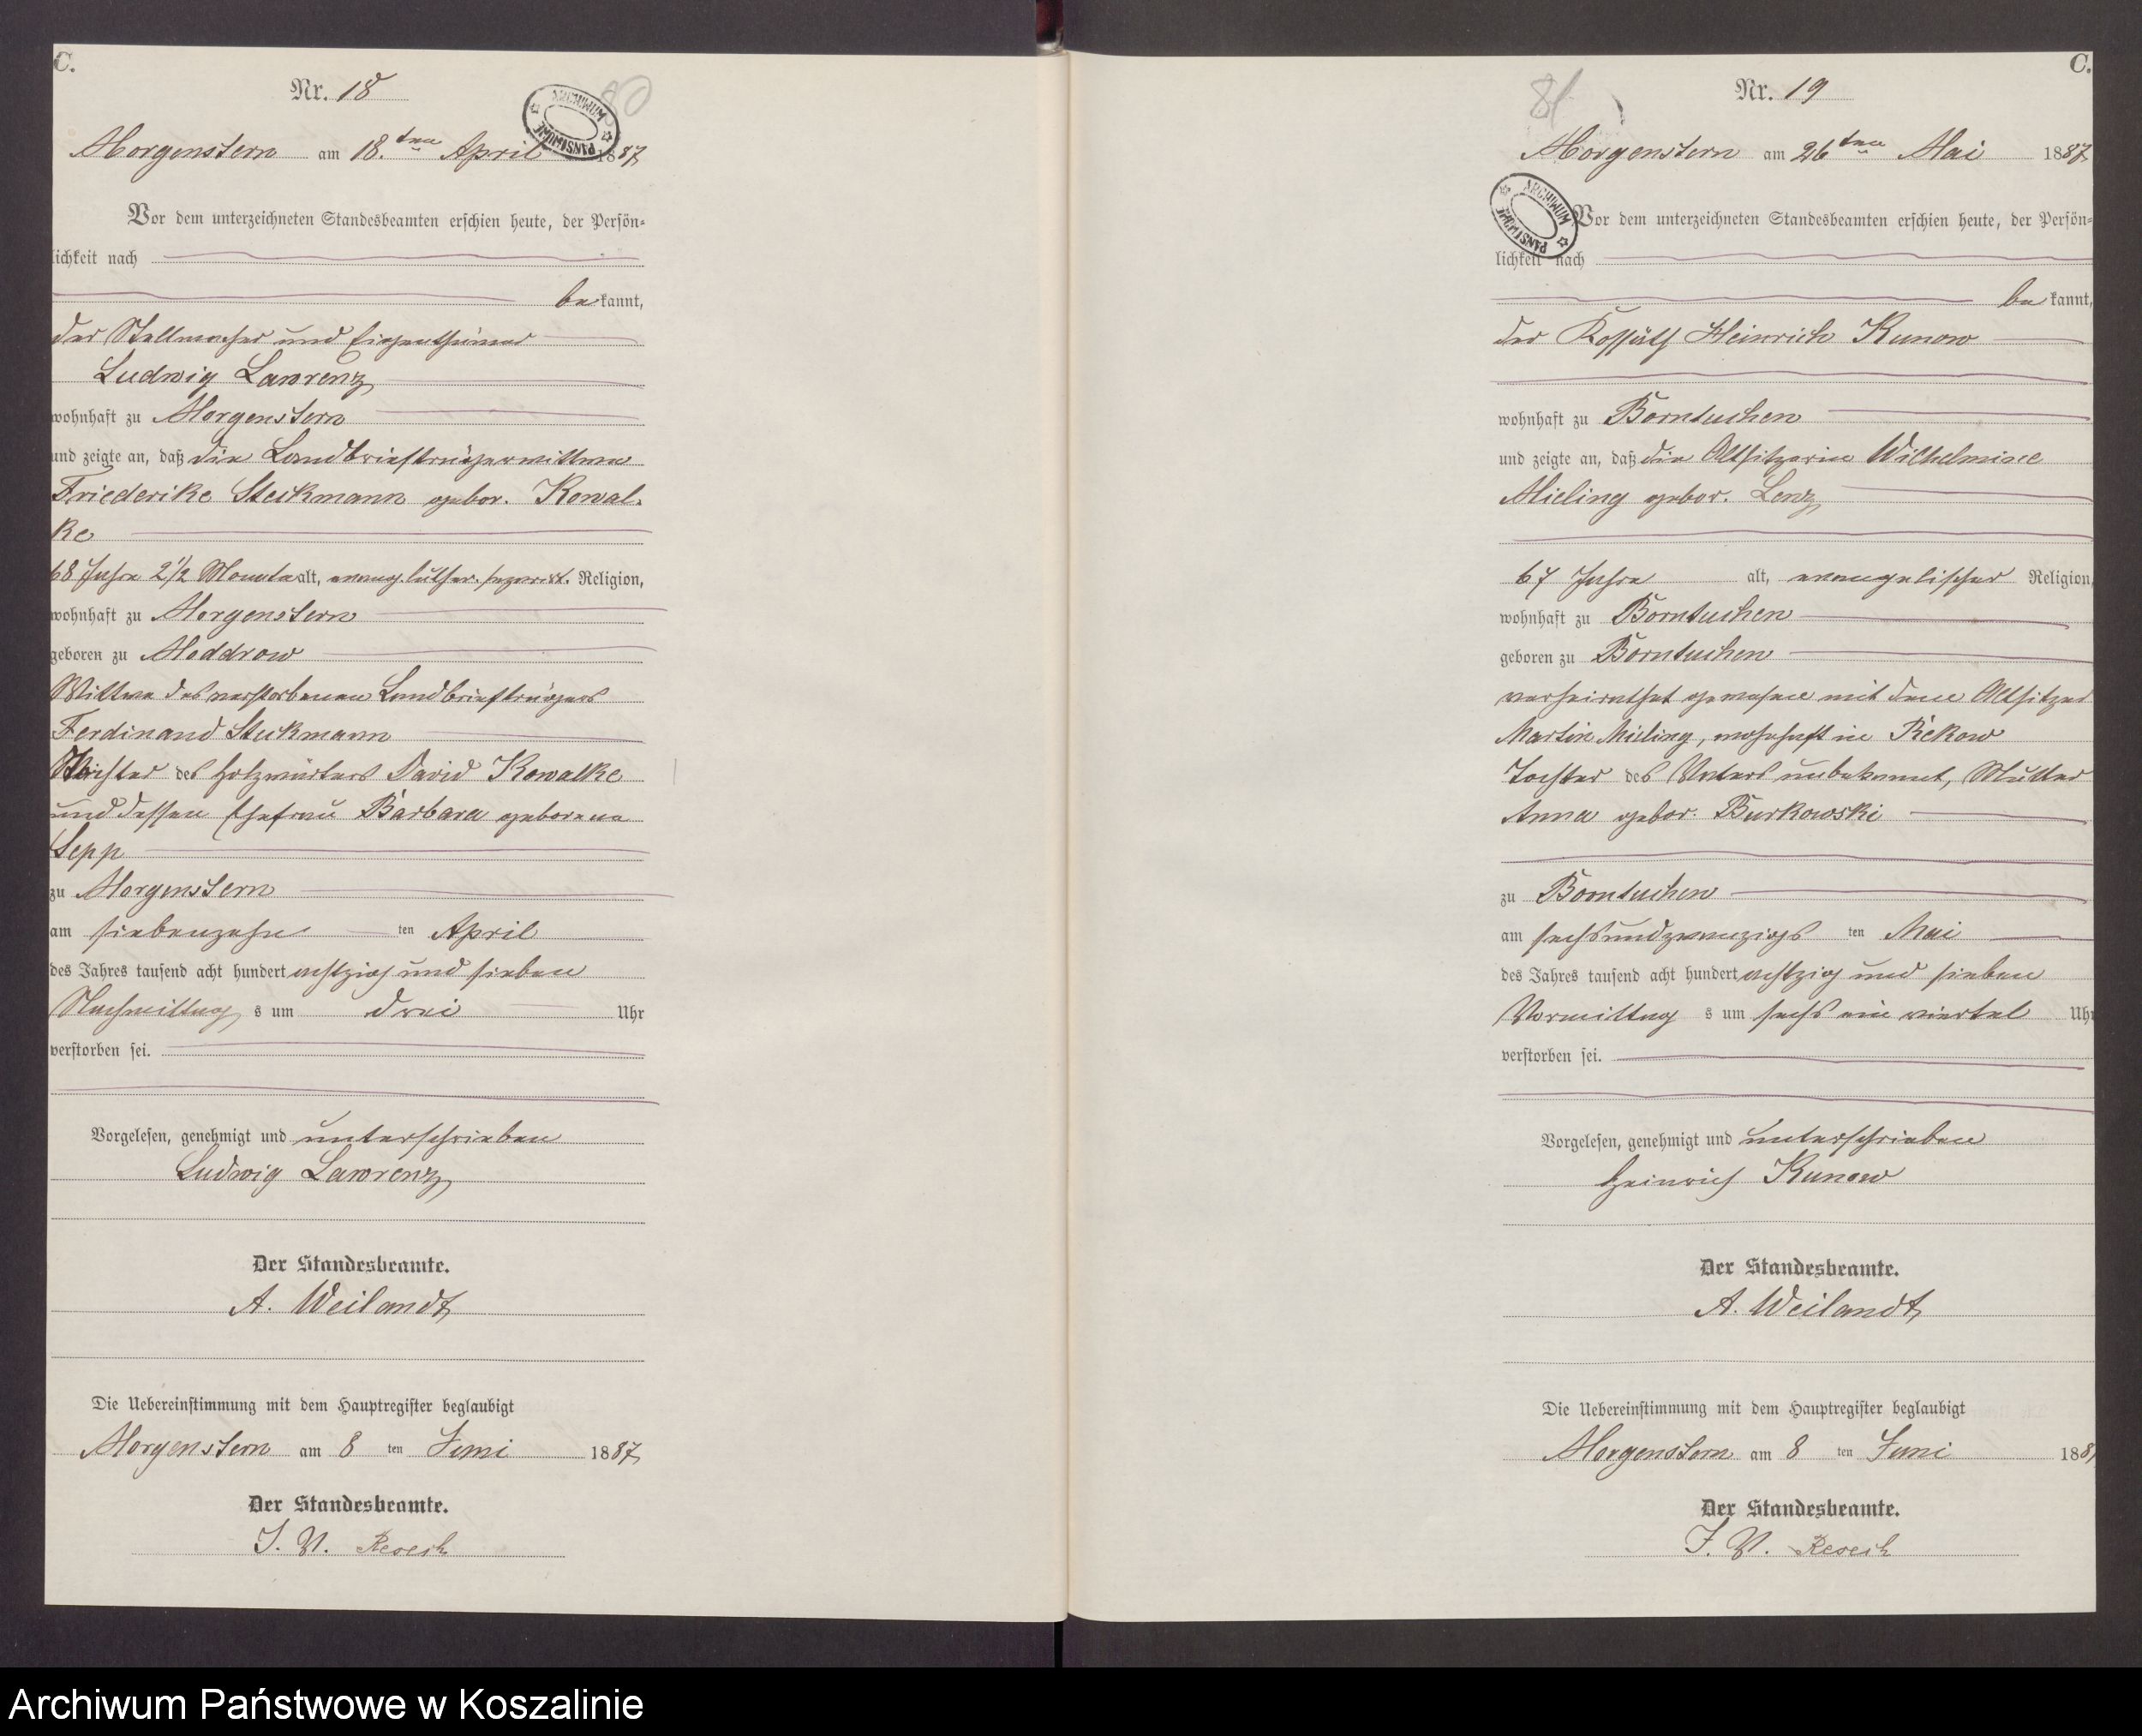 C.
Nr. 18
80
ARCHIWUM PAŃSTWOWE
Morgenstern am 18.ten April 1887
Vor dem unterzeichneten Standesbeamten erschien heute, der Persön-
lichkeit nach
be kannt,
der Stellmacher und Eigenthümer
Ludwig Lawrenz
wohnhaft zu Morgenstern
und zeigte an, daß die Landbriefträgerwittwe
Friederike Steckmann gebor. Kowal-
ke
68 Jahre 2 1/2 Monate alt, evang. luther. separirt. Religion,
wohnhaft zu Morgenstern
geboren zu Moddrow
Wittwe des verstorbenen Landbriefträgers
Ferdinand Steckmann
Tochter des Holzwärters David Kowalke
und dessen Ehefrau Barbara geborene
Sepp
zu Morgenstern
am siebenzehn ten April
des Jahres tausend acht hundert achtzig und sieben
Nachmittag s um drei Uhr
verstorben sei.
Vorgelesen, genehmigt und unterschrieben
Ludwig Lawrenz
Der Standesbeamte.
A. Weilandt
Die Uebereinstimmung mit dem Hauptregister beglaubigt
Morgenstern am 8 ten Juni 1887
Der Standesbeamte.
J. V.
C.
Nr. 19
81
ARCHIWUM PAŃSTWOWE
Morgenstern am 26ten Mai 1887
Vor dem unterzeichneten Standesbeamten erschien heute, der Persön-
lichkeit nach
be kannt,
der Kossäth Heinrich Kunow
wohnhaft zu Borntuchen
und zeigte an, daß die Altsitzerin Wilhelmine
Mieling gebor. Lenz
67 Jahre alt, evangelischer Religion,
wohnhaft zu Borntuchen
geboren zu Borntuchen
verheirathet gewesen mit dem Altsitzer
Martin Mieling, wohnhaft in Rekow
Tochter des Vaters unbekannt, Mutter
Anna gebor. Burkowski
zu Borntuchen
am sechsundzwanzigs ten Mai
des Jahres tausend acht hundert achtzig und sieben
Vormittag s um sechs ein viertel Uhr
verstorben sei.
Vorgelesen, genehmigt und unterschrieben
Heinrich Kunow
Der Standesbeamte.
A. Weilandt
Die Uebereinstimmung mit dem Hauptregister beglaubigt
Morgenstern am 8 ten Juni 188
Der Standesbeamte.
J. V.
Archiwum Państwowe w Koszalinie